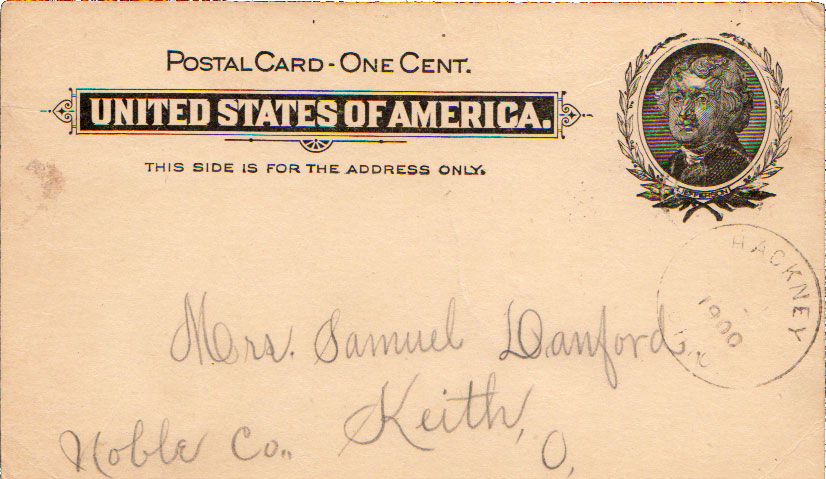 POSTAL CARD - ONE CENT.
UNITED STATES OF AMERICA.
THIS SIDE IS FOR THE ADDRESS ONLY.
JEFFERSON
HACKNEY
1900
Mrs. Samuel Danford
Keith,
Noble Co., O,